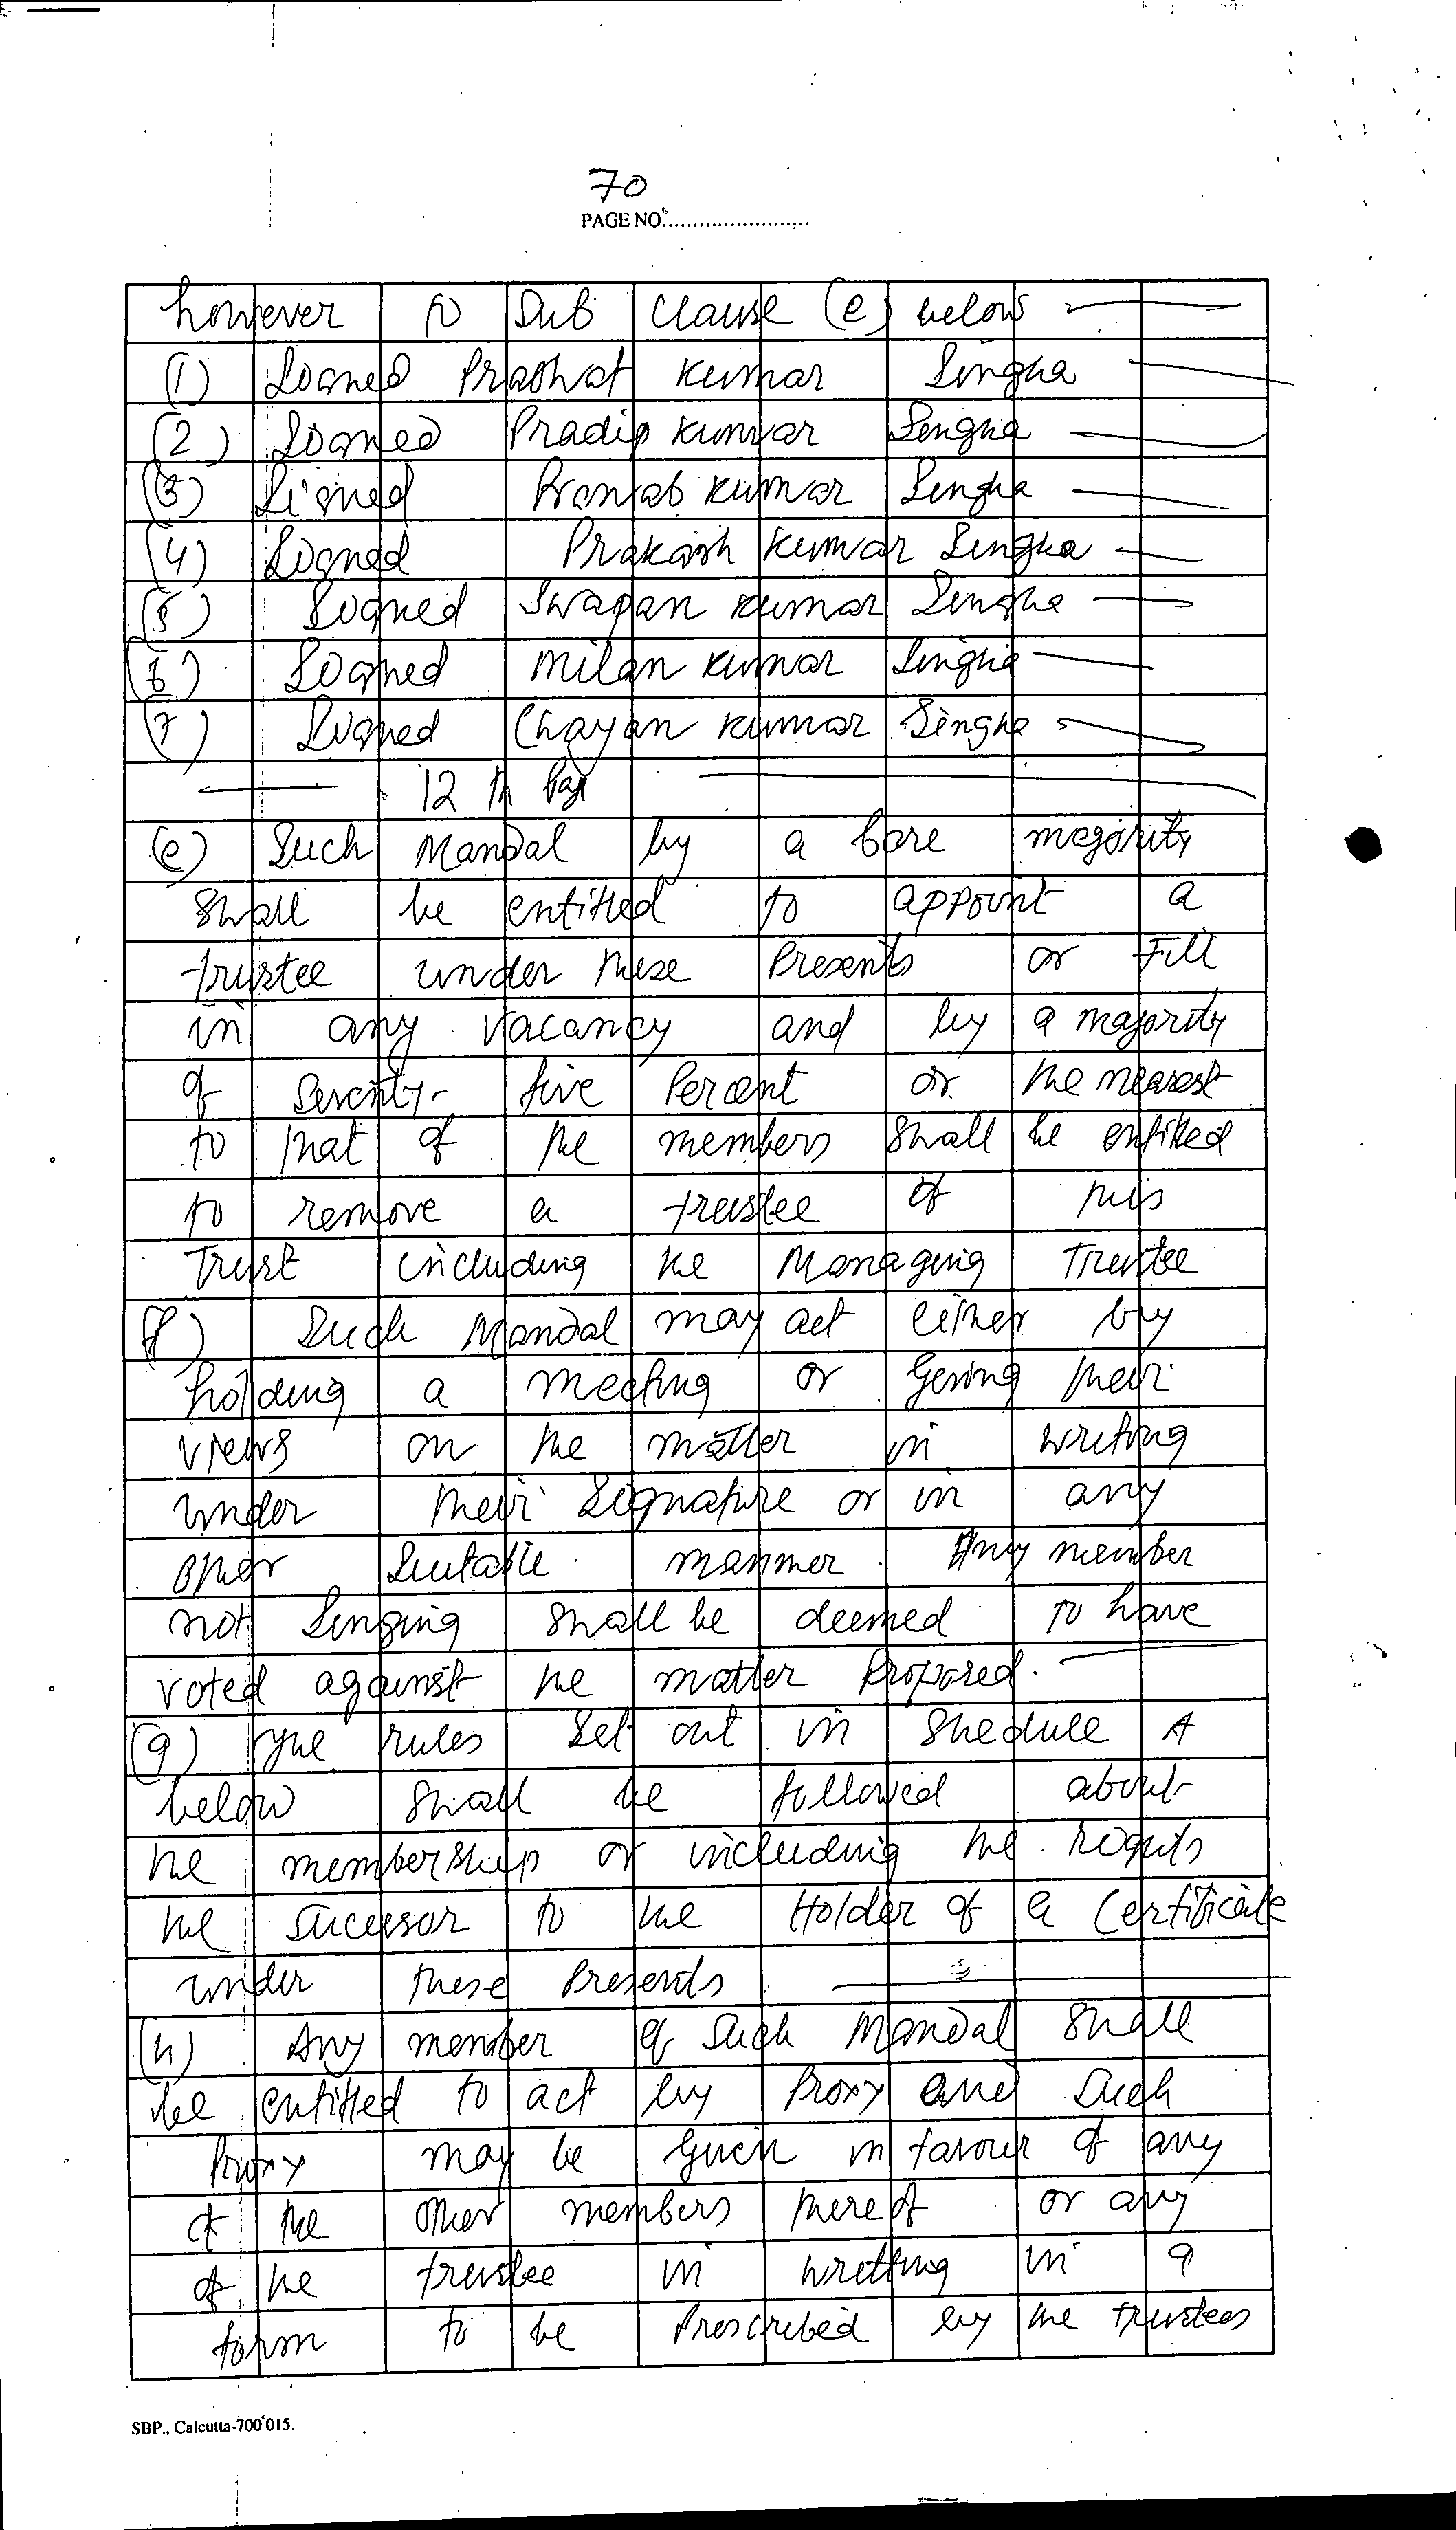 70
PAGE NO.........................
however to Sub Clause (e) below
(1) Signed Prabhat Kumar Singha
(2) Signed Pradip Kumar Singha
(3) Signed Pranab Kumar Singha
(4) Signed Prakash Kumar Singha
(5) Signed Swapan Kumar Singha
(6) Signed Milan Kumar Singha
(7) Signed Chayan Kumar Singha
12 th Page
(e) Such Mandal by a bare majority
Shall be entitled to appoint a
trustee under these Presents or Fill
in any vacancy and by a majority
of Seventy- five Percent or the nearest
to that of the members Shall be entitled
to remove a trustee of this
Trust including the Managing Trustee
(f) Such Mandal may act either by
holding a meeting or Geving their
views on the matter in writing
under their Signature or in any
other Suitable manner. Any member
not Singing Shall be deemed to have
voted against the matter Proposed.
(g) The rules Set out in Shedule A
below Shall be followed about
the membership or including the rights
the Sucessor to the Holder of a Certificate
under these Presents
(h) Any member of Such Mandal Shall
be entitled to act by Proxy and Such
Proxy may be Given in favour of any
of the other members thereof or any
of the trustee in wretting in a
form to be Prescribed by the trustees
SBP., Calcutta-700 015.